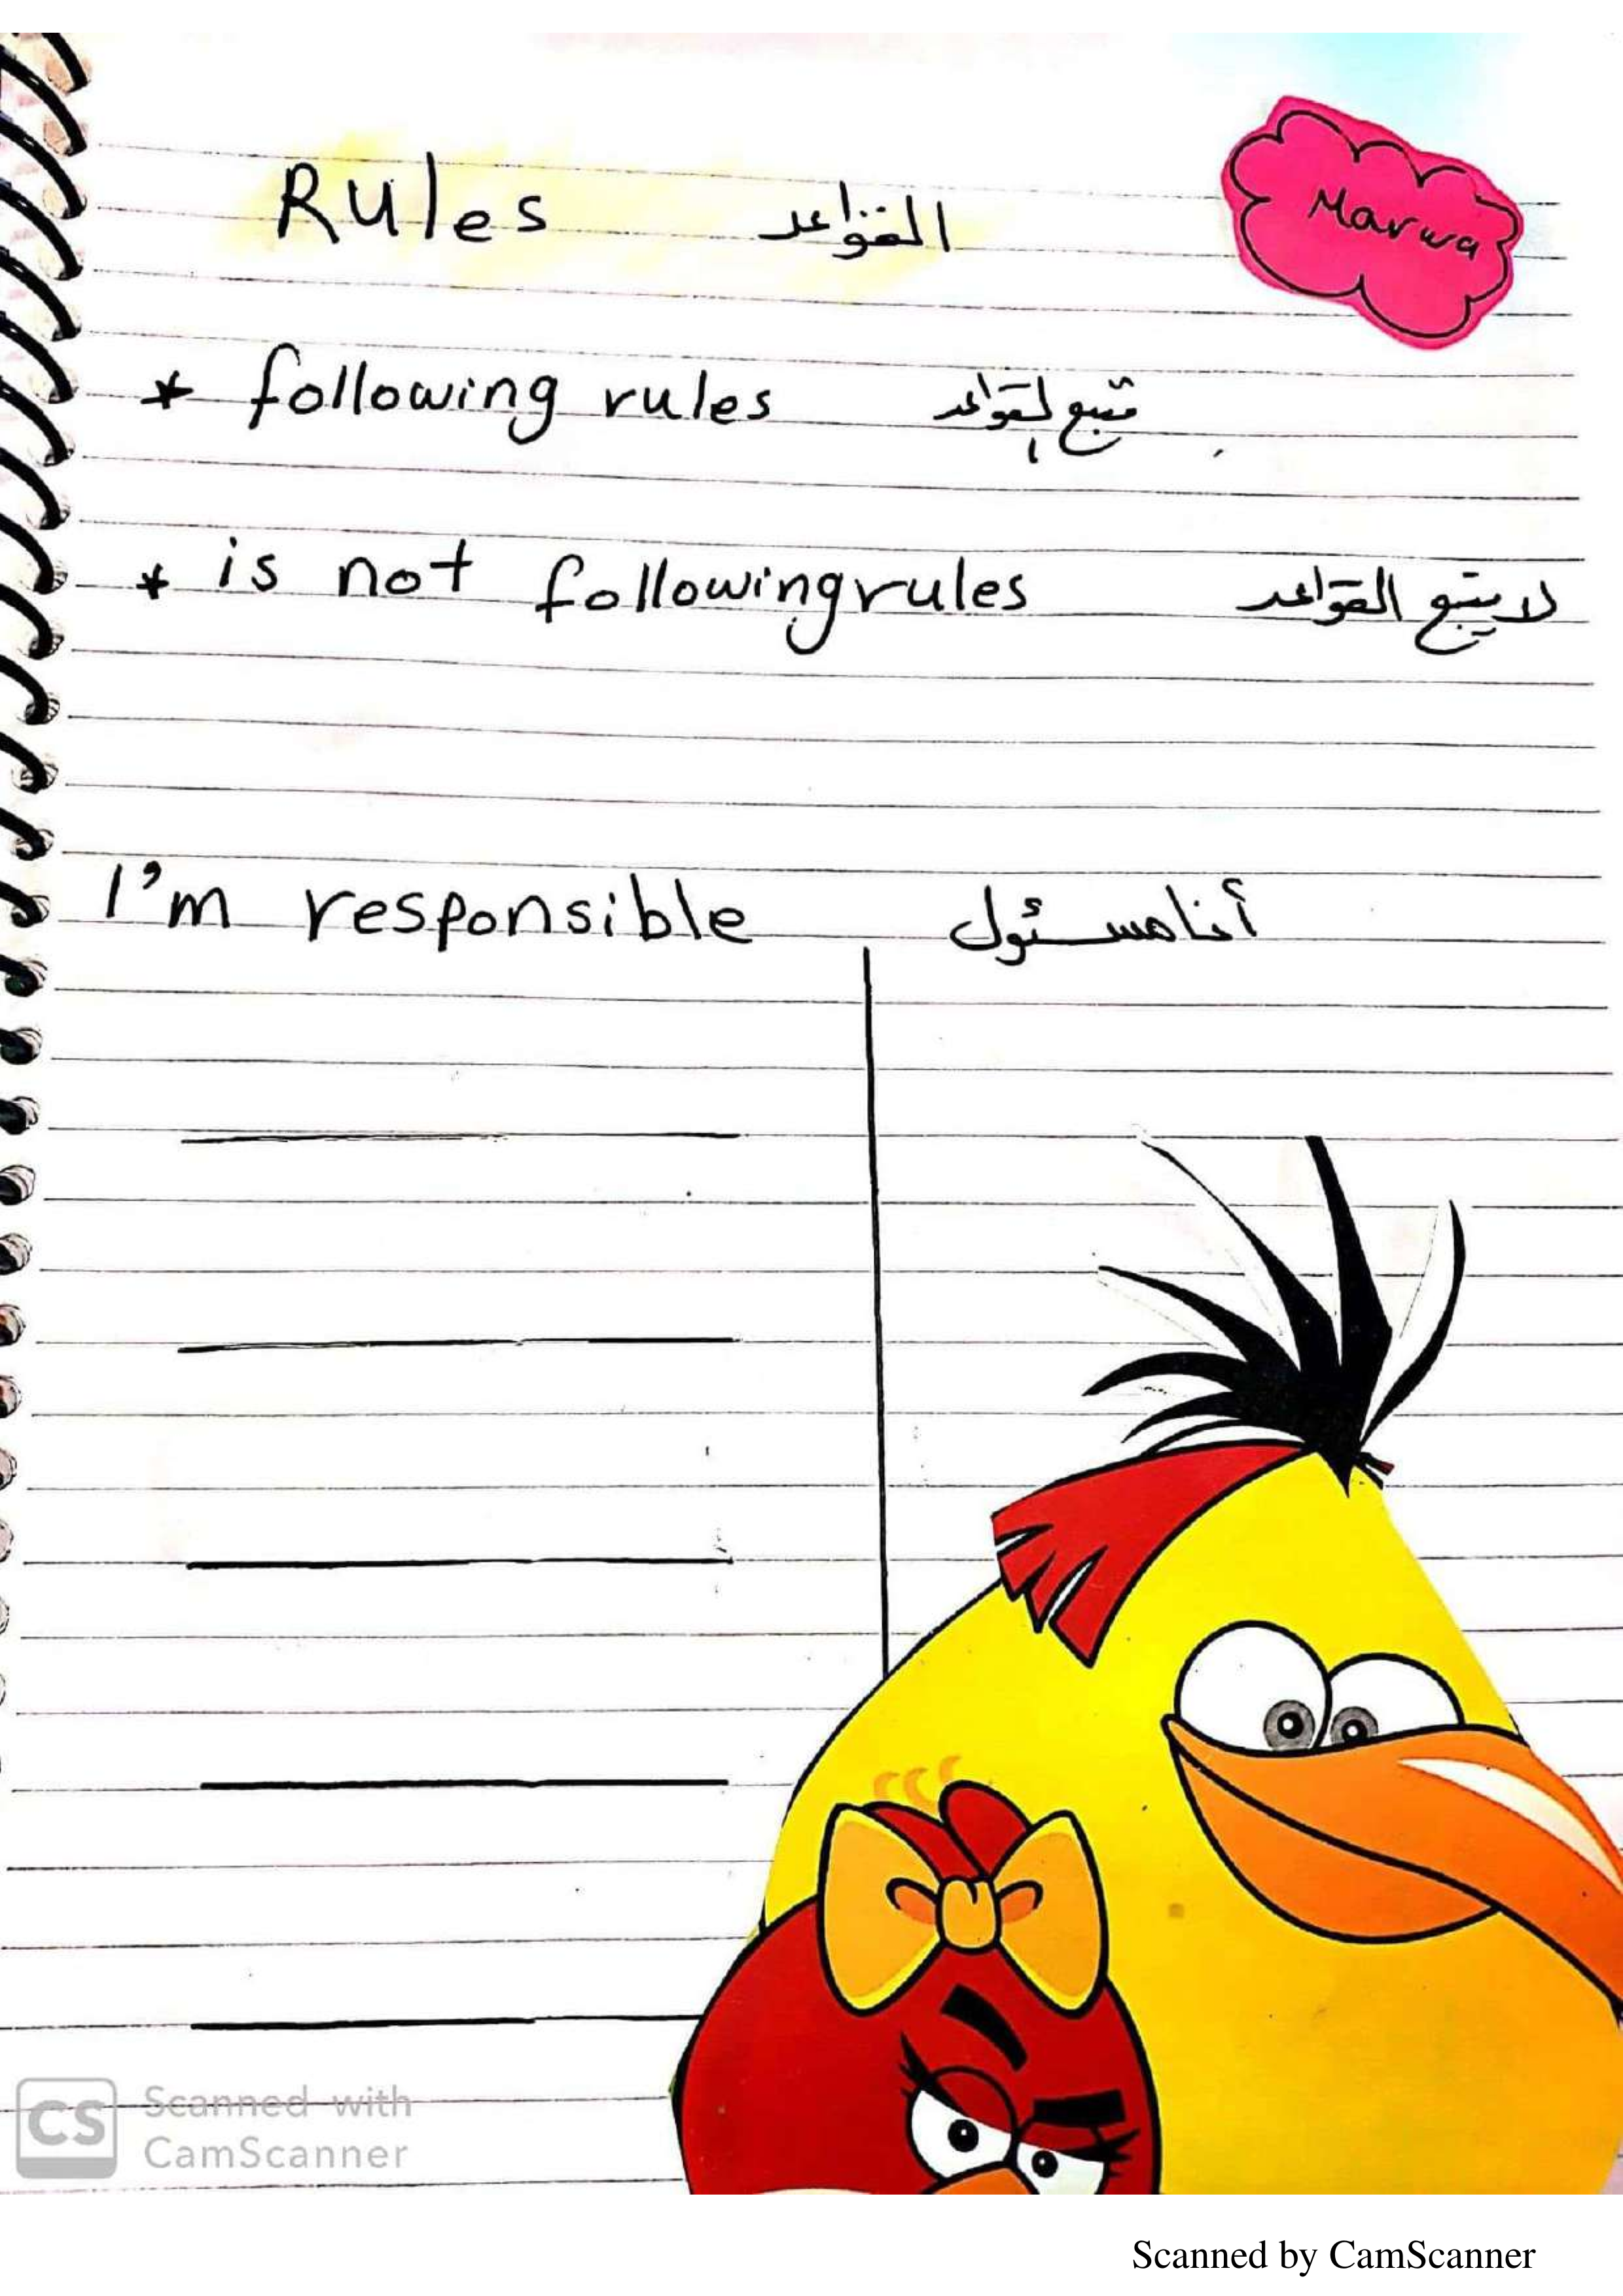 Marwa
Rules القواعد
* following rules متبع القواعد
* is not followingrules لا يتبع القواعد
I'm responsible أنا مسئول
CS Scanned with
CamScanner
Scanned by CamScanner